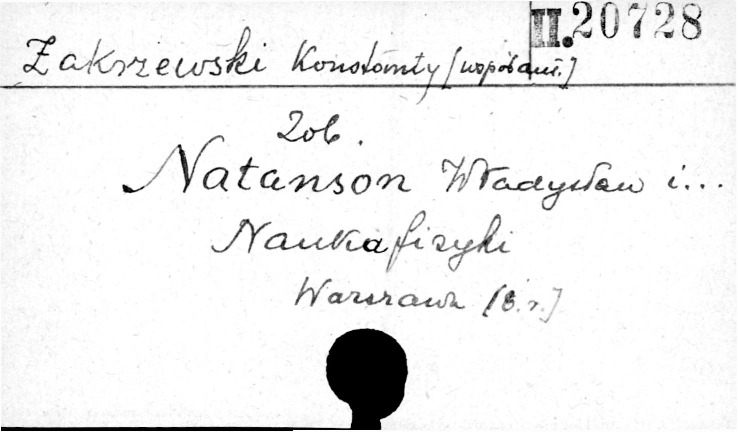 II.20728
Zakrzewski Konstanty [współaut.]
Zob.
Natanson Władysław i...
Nauka fizyki
Warszawa [B.r.]